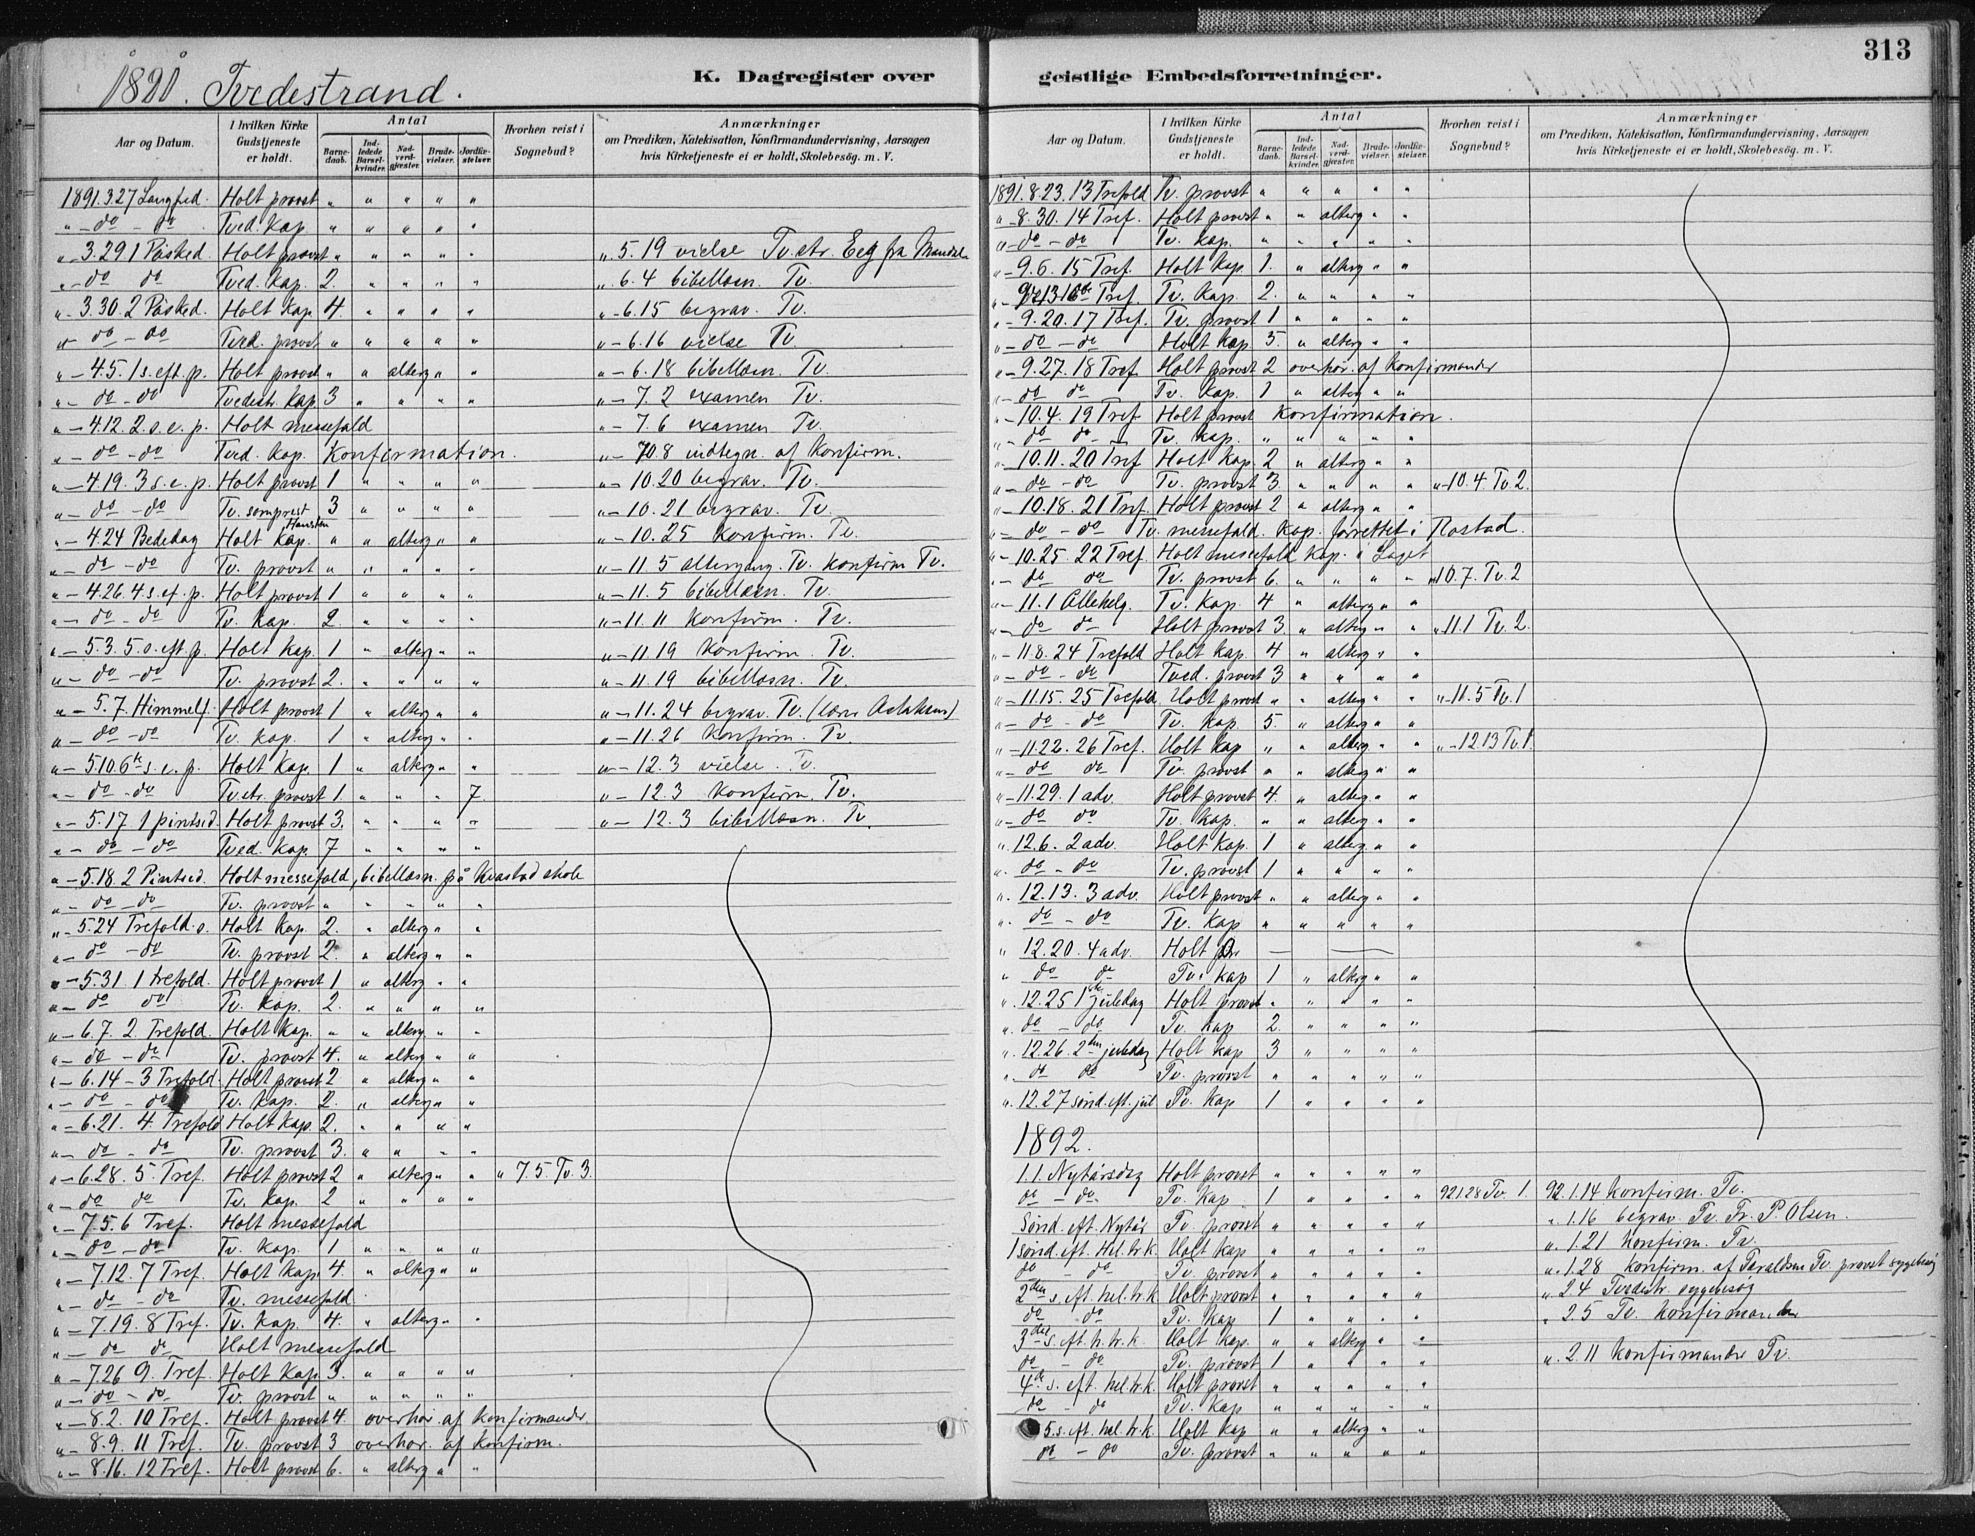 313
1891. Tvedestrand.
K. Dagregister over
geistlige Embedsforretninger.
Aar og Datum.
I hvilken Kirke Gudstjeneste er holdt.
Antal
Barnedaab.
Indledede Barselkvinder.
Nadverdgjæster.
Brudevielser.
Jordfæstelser.
Hvorhen reist i Sognebud?
Anmærkninger
om Prædiken, Katekisation, Konfirmandundervisning, Aarsagen
hvis Kirketjeneste ei er holdt, Skolebesøg. m. V.
1891. 3.27 Langfred. Holt provst " " " " "
" - do - do Tved. kap. " " " " "
" - 3.29 1 Påsked. Holt provst " " " " " " 5.19 vielse Tv.str. Eeg fra Mandal
" - do do Tved. kap. 2. " " " " " 6.4 bibellæsn. Tv.
" - 3.30. 2 Påsked. Holt kap. 4. " " " " " - 6.15 begrav. Tv.
" - do - do Tved. provst " " " " " " - 6.16 vielse Tv.
" - 4.5. 1 s. eft. p. Holt provst " " alterg " " " - 6.18 bibellæsn. Tv.
" - do - do Tvedestr. kap. 3 " " " " " - 7.2 examen Tv.
" - 4.12. 2. s. e. p. Holt messefald " - 7.6 examen Tv.
" - do - do Tved. kap. Konfirmation. " - 10.8 indtegn. af konfirm.
" - 4.19. 3 s. e. p. Holt provst 1 " " " " " - 10.20 begrav. Tv.
" - do - do Tv. somprest Hansten 3 " " " " " - 10.21 begrav. Tv.
" - 4.24 Bededag Holt kap. " " alterg " " " - 10.25 konfirm. Tv.
" - do - do Tv. provst " " " " " " - 11.5 altergang. Tv. konfirm Tv.
" - 4.26. 4 s. ef. p. Holt provst 1 " " " " " - 11.5 bibellæsn. Tv.
" - do - do Tv. kap. 2. " " " " " - 11.11 Konfirm. Tv.
" - 5.3. 5. s. eft. p. Holt kap. 1 " alterg " " " - 11.19 konfirm. Tv.
" - do - do Tv. provst 2. " " " " " - 11.19 bibellæsn. Tv.
" - 5.7. Himmelf. Holt provst 1 " alterg " " " - 11.24 begrav. Tv.
" - do - do Tv. kap. 1 " alterg " " " - 11.26 konfirm. Tv.
" - 5.10. 6te s. e. p. Holt kap. 1 " alterg " " " - 12.3 vielse. Tv.
" - do - do Tv.str. provst 1 " " " 7. " - 12.3 konfirm. Tv.
" - 5.17. 1 pintsed. Holt provst 3. " " " " " - 12.3 bibellæsn. Tv.
" - do - do Tved. kap. 7 " " " "
" - 5.18. 2 Pintsed. Holt messefald, bibellæsn. på Kvastad skole
" - do - do Tv. provst " " " " "
" - 5.24 Trefold. s. Holt kap. 2. " alterg " "
" - do - do Tv. provst 2. " alterg " "
" - 5.31. 1 trefold. Holt provst 1 " alterg " "
" - do do Tv. kap. 2. " " " "
" - 6.7. 2. Trefold. Holt kap. " " alterg " "
" - do - do Tv. provst 4. " alterg " "
" - 6.14 - 3 Trefold. Holt provst 2 " alterg " "
" - do - do Tv. kap. 2. " alterg " "
" - 6.21. 4. Trefold Holt kap. 2. " " " "
" - do - do Tv. provst 3. " " " "
" - 6.28. 5. Tref. Holt provst 2 " alterg " " " 7.5. Tv. 3.
" - do do Tv. kap. 2 " " " "
" - 7.5. 6 Tref. Holt messefald
" - do - do Tv. kap. 1 " " " "
" - 7.12. 7 Tref. Holt kap. 4. " alterg " "
" - do - do Tv. messefald.
" - 7.19. 8 Tref. Tv. kap. 4. " alterg " "
" - do do Holt messefald
" - 7.26 9. Tref. Holt kap. 3. " " " "
" - do - do Tv. provst " " " " "
" - 8.2. 10 Tref. Holt provst 4. overhør af konfirmander.
" - 8.9. 11 Tref. Tv. provst 3 overhør. af konfirm.
" - 8.16. 12 Tref. Holt provst 6. " alterg " "
Aar og Datum.
I hvilken Kirke Gudstjeneste er holdt.
Antal
Barnedaab.
Indledede Barselkvinder.
Nadverdgjæster.
Brudevielser.
Jordfæstelser.
Hvorhen reist i Sognebud?
Anmærkninger
om Prædiken, Katekisation, Konfirmandundervisning, Aarsagen
hvis Kirketjeneste ei er holdt, Skolebesøg. m. V.
1891. 8.23. 13 Trefold Tv. provst " " " " "
" - 8.30. 14 Tref. Holt provst " " alterg " "
" - do - do Tv. kap. " " " " "
" - 9.6. 15 Tref. Holt kap. 1. " alterg " "
" - 9.13 16de Tref. Tv. kap. 2. " " " "
" - 9.20. 17 Tref. Tv. provst 1 " " " "
" - do - do Holt kap. 5. " alterg " "
" - 9.27. 18 Tref. Holt provst 2 overhør. af konfirmander
" - do do Tv. kap. 1 " alterg " "
" - 10.4. 19 Tref Holt provst Konfirmation.
" - do do - Tv. kap. " " " " "
" - 10.11. 20 Tref Holt kap. 2 " alterg " "
" - do - do Tv. provst 3. " " " " " - 10.4. Tv. 2.
" - 10.18. 21 Tref. Holt provst 2 " alterg " "
" - do - do Tv. messefald. kap. forrettet i Flostad.
" - 10.25. 22 Tref. Holt messefald kap. i Laget
" - do do Tv. provst 6. " " " " " 10.7. Tv. 2
" - 11.1 Allehelg. Tv. kap. 4 " alterg " "
" - do do Holt provst 3. " alterg " " " 11.1 Tv. 2.
" - 11.8. 24 Trefold Holt kap. 4 " alterg " "
" - do - do Tved. provst 3 " " " "
" - 11.15. 25 Trefold Holt provst " " alterg " " " - 11.5 Tv. 1
" - do - do Tv. kap. 5. " alterg " "
" - 11.22. 26 Tref. Holt kap " " alterg " " " - 12.13 Tv. 1
" - do do Tv. provst " " alterg " "
" - 11.29. 1 adv. Holt provst 4. " alterg " "
" - do do Tv. kap. " " alterg " "
" 12.6. 2 adv. Holt kap. 1 " alterg " "
" do - do Tv. provst 1 " " " "
" 12.13. 3 adv. Holt provst " " alterg " "
" do - do Tv. kap " " " " "
" 12.20. 4 adv. Holt — —
" do do Tv. kap 1 " alterg " "
" 12.25 1ste juledag Holt provst " " " " "
" do - do Tv. kap 2. " " " "
" 12.26. 2den juledag Holt kap 3 " " " "
" do do Tv. provst " " " " "
" 12.27 sønd. eft. jul Tv. kap 1 " " " "
1892.
1.1. Nytårsdag Holt provst " " " " "
do - do Tv. kap 1 " " " " 92 1.28 Tv. 1. 92. 1.14 konfirm. Tv.
Sønd. eft. Nytår Tv. provst " " " " " " 1.16 begrav. Tv. Fr. P. Olsen.
1 sønd. eft. Hel. tr. k. Holt kap " " " " " " 1.21 konfirm. Tv.
do - do Tv. provst " " " " " " 1.28 konfirm. af Taraldsen Tv. provst sygebesøg
2den s. eft. hel. tr. k. Holt provst " " " " " " 2.4 Tvedestr. sygebesøg
do do Tv. kap 1 " " " " " 2.5 Tv. konfirmander
3die s. eft. h. tr. k Holt kap. " " alterg " "
do - do Tv. provst 1 " " " " " 2.11 konfirmander Tv.
4de s. eft. hel. tr. k. Holt provst " " " " "
do - do Tv. kap " " " " "
5. s. eft. hel. tr. k. Holt kap " " alterg " "
do - do Tv. provst " " " " "